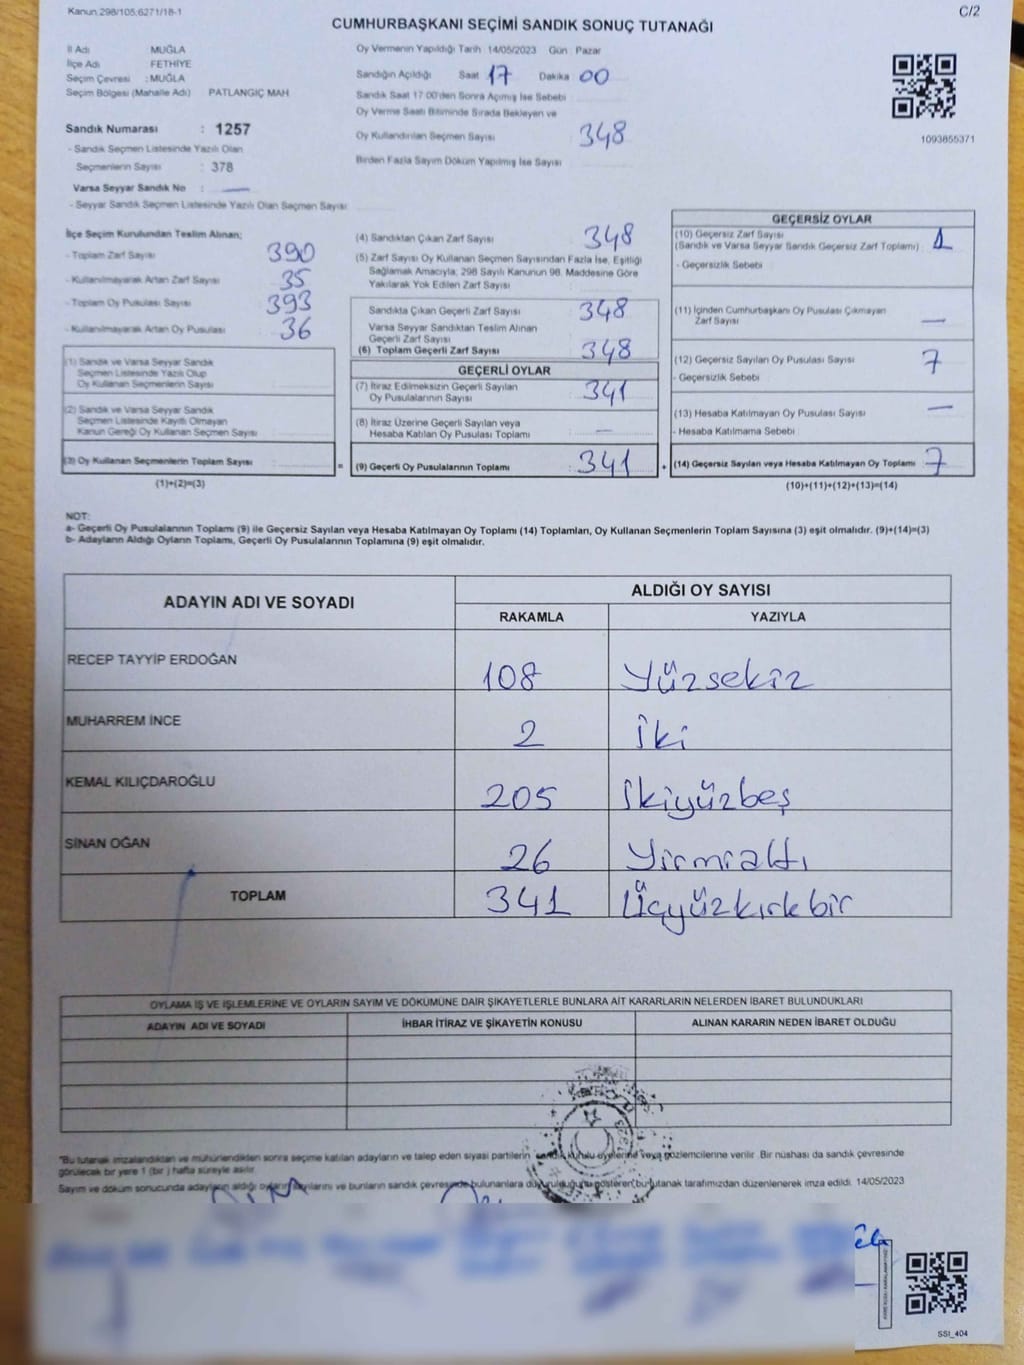 Kanun:298/105;6271/18-1
C/2
CUMHURBAŞKANI SEÇİMİ SANDIK SONUÇ TUTANAĞI
İl Adı MUĞLA
İlçe Adı FETHİYE
Seçim Çevresi : MUĞLA
Seçim Bölgesi (Mahalle Adı) PATLANGIÇ MAH
Sandık Numarası : 1257
- Sandık Seçmen Listesinde Yazılı Olan
Seçmenlerin Sayısı : 378
Varsa Seyyar Sandık No : —
- Seyyar Sandık Seçmen Listesinde Yazılı Olan Seçmen Sayısı
Oy Vermenin Yapıldığı Tarih 14/05/2023 Gün : Pazar
Sandığın Açıldığı Saat 17 Dakika 00
Sandık Saat 17.00'den Sonra Açılmış İse Sebebi
Oy Verme Saati Bitiminde Sırada Bekleyen ve
Oy Kullandırılan Seçmen Sayısı : 348
Birden Fazla Sayım Döküm Yapılmış İse Sayısı
1093855371
İlçe Seçim Kurulundan Teslim Alınan;
- Toplam Zarf Sayısı : 390
- Kullanılmayarak Artan Zarf Sayısı : 35
- Toplam Oy Pusulası Sayısı : 393
- Kullanılmayarak Artan Oy Pusulası : 36
(1) Sandık ve Varsa Seyyar Sandık
Seçmen Listesinde Yazılı Olup
Oy Kullanan Seçmenlerin Sayısı
(2) Sandık ve Varsa Seyyar Sandık
Seçmen Listesinde Kayıtlı Olmayan
Kanun Gereği Oy Kullanan Seçmen Sayısı
(3) Oy Kullanan Seçmenlerin Toplam Sayısı :
(1)+(2)=(3)
(4) Sandıktan Çıkan Zarf Sayısı : 348
(5) Zarf Sayısı Oy Kullanan Seçmen Sayısından Fazla İse, Eşitliği
Sağlamak Amacıyla; 298 Sayılı Kanunun 98. Maddesine Göre
Yakılarak Yok Edilen Zarf Sayısı :
Sandıkta Çıkan Geçerli Zarf Sayısı : 348
Varsa Seyyar Sandıktan Teslim Alınan
Geçerli Zarf Sayısı
(6) Toplam Geçerli Zarf Sayısı : 348
GEÇERLİ OYLAR
(7) İtiraz Edilmeksizin Geçerli Sayılan
Oy Pusulalarının Sayısı : 341
(8) İtiraz Üzerine Geçerli Sayılan veya
Hesaba Katılan Oy Pusulası Toplamı : —
= (9) Geçerli Oy Pusulalarının Toplamı : 341 +
GEÇERSİZ OYLAR
(10) Geçersiz Zarf Sayısı
(Sandık ve Varsa Seyyar Sandık Geçersiz Zarf Toplamı) : 1
- Geçersizlik Sebebi
(11) İçinden Cumhurbaşkanı Oy Pusulası Çıkmayan
Zarf Sayısı —
(12) Geçersiz Sayılan Oy Pusulası Sayısı : 7
- Geçersizlik Sebebi
(13) Hesaba Katılmayan Oy Pusulası Sayısı : —
- Hesaba Katılmama Sebebi :
(14) Geçersiz Sayılan veya Hesaba Katılmayan Oy Toplamı : 7
(10)+(11)+(12)+(13)=(14)
NOT:
a- Geçerli Oy Pusulalarının Toplamı (9) ile Geçersiz Sayılan veya Hesaba Katılmayan Oy Toplamı (14) Toplamları, Oy Kullanan Seçmenlerin Toplam Sayısına (3) eşit olmalıdır. (9)+(14)=(3)
b- Adayların Aldığı Oyların Toplamı, Geçerli Oy Pusulalarının Toplamına (9) eşit olmalıdır.
ADAYIN ADI VE SOYADI ALDIĞI OY SAYISI
RAKAMLA YAZIYLA
RECEP TAYYİP ERDOĞAN 108 Yüzsekiz
MUHARREM İNCE 2 İki
KEMAL KILIÇDAROĞLU 205 İkiyüzbeş
SİNAN OĞAN 26 Yirmialtı
TOPLAM 341 Üçyüzkırkbir
OYLAMA İŞ VE İŞLEMLERİNE VE OYLARIN SAYIM VE DÖKÜMÜNE DAİR ŞİKAYETLERLE BUNLARA AİT KARARLARIN NELERDEN İBARET BULUNDUKLARI
ADAYIN ADI VE SOYADI İHBAR İTİRAZ VE ŞİKAYETİN KONUSU ALINAN KARARIN NEDEN İBARET OLDUĞU
"Bu tutanak imzalandıktan ve mühürlendikten sonra seçime katılan adayların ve talep eden siyasi partilerin sandık kurulu üyelerine veya gözlemcilerine verilir. Bir nüshası da sandık çevresinde
görülecek bir yere 1 (bir ) hafta süreyle asılır.
Sayım ve döküm sonucunda adayların aldığı oyların sayılarını ve bunların sandık çevresinde bulunanlara duyurulduğunu gösteren bu tutanak tarafımızdan düzenlenerek imza edildi. 14/05/2023
SSI_404